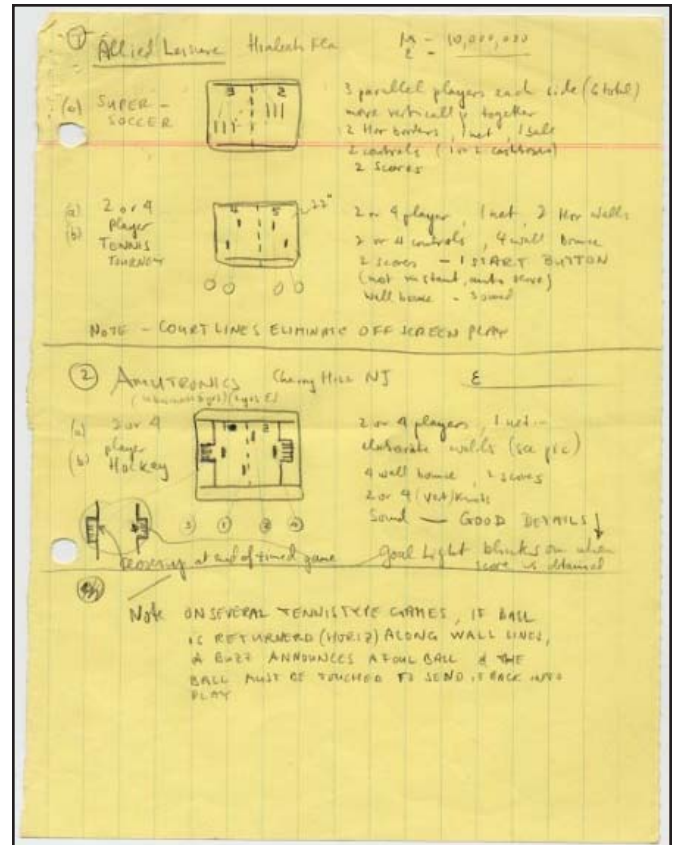 ① Allied Leisure Hialeah Fla 10,000,000
(a) SUPER-
SOCCER
3 2
3 parallel players each side (6 total)
move vertically together
2 Hor borders, 1 net, 1 ball
2 controls (1 or 2 cashboxes)
2 Scores
(a) 2 or 4
(b) Player
TENNIS
TOURNEY
4 5
22"
2 or 4 player, 1 net, 2 Hor walls
2 or 4 controls, 4 wall bounce
2 scores - 1 START BUTTON
(not instant, auto serve)
Wall bounce - Sound
NOTE - COURT LINES ELIMINATE OFF SCREEN PLAY
② AMUTRONICS Cherry Hill NJ E
(a) 2 or 4
(b) player
Hockey
1 2
3 1 2 4
2 or 4 players, 1 net --
elaborate walls (see pic)
4 wall bounce, 2 scores
2 or 4 (Vert) Knobs
Sound — GOOD DETAILS
Goal Light blinks on when
score is obtained
at end of timed game
Note ON SEVERAL TENNIS TYPE GAMES, IF BALL
IS RETURNERD (HORIZ) ALONG WALL LINES,
A BUZZ ANNOUNCES A FOUL BALL & THE
BALL MUST BE TOUCHED TO SEND IT BACK INTO
PLAY